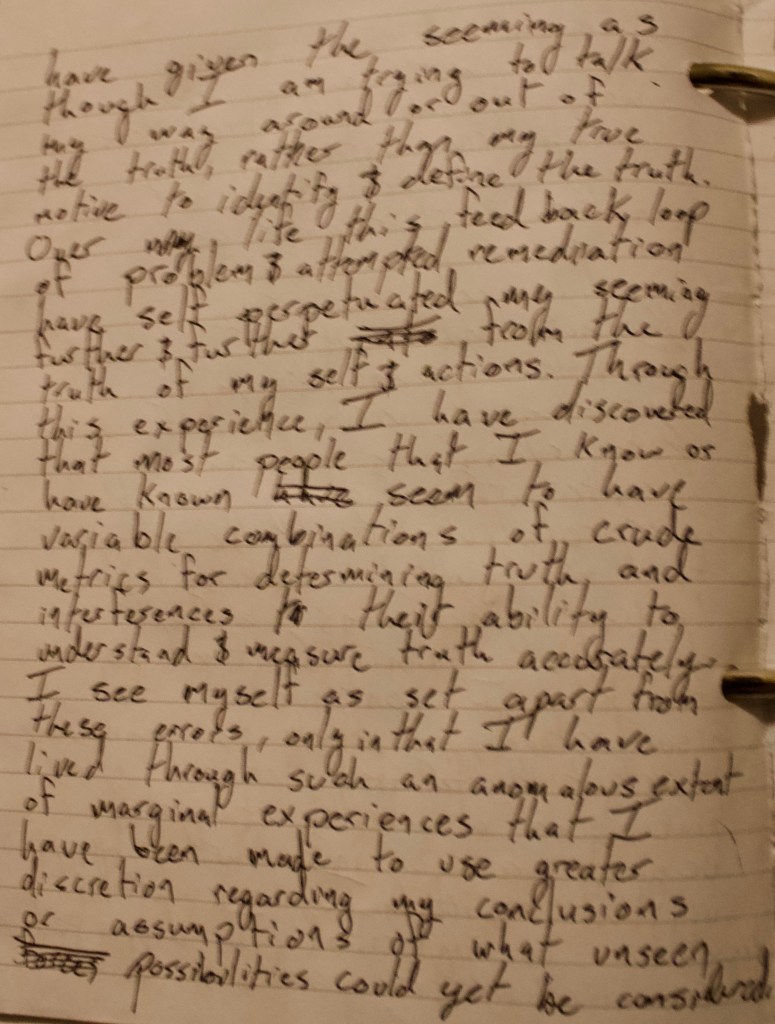 have given the seeming as
though I am trying to talk
my way around or out of
the truth, rather than my true
motive to identify & define the truth.
Over my life this feed back loop
of problem & attempted remediation
have self perpetuated my seeming
further & further from the
truth of my self & actions. Through
this experience, I have discovered
that most people that I know or
have known have seem to have
variable combinations of crude
metrics for determining truth, and
interferences to their ability to
understand & measure truth accurately.
I see myself as set apart from
these errors, only in that I have
lived through such an anomalous extent
of marginal experiences that I
have been made to use greater
discretion regarding my conclusions
or assumptions of what unseen
possibilities could yet be considered.